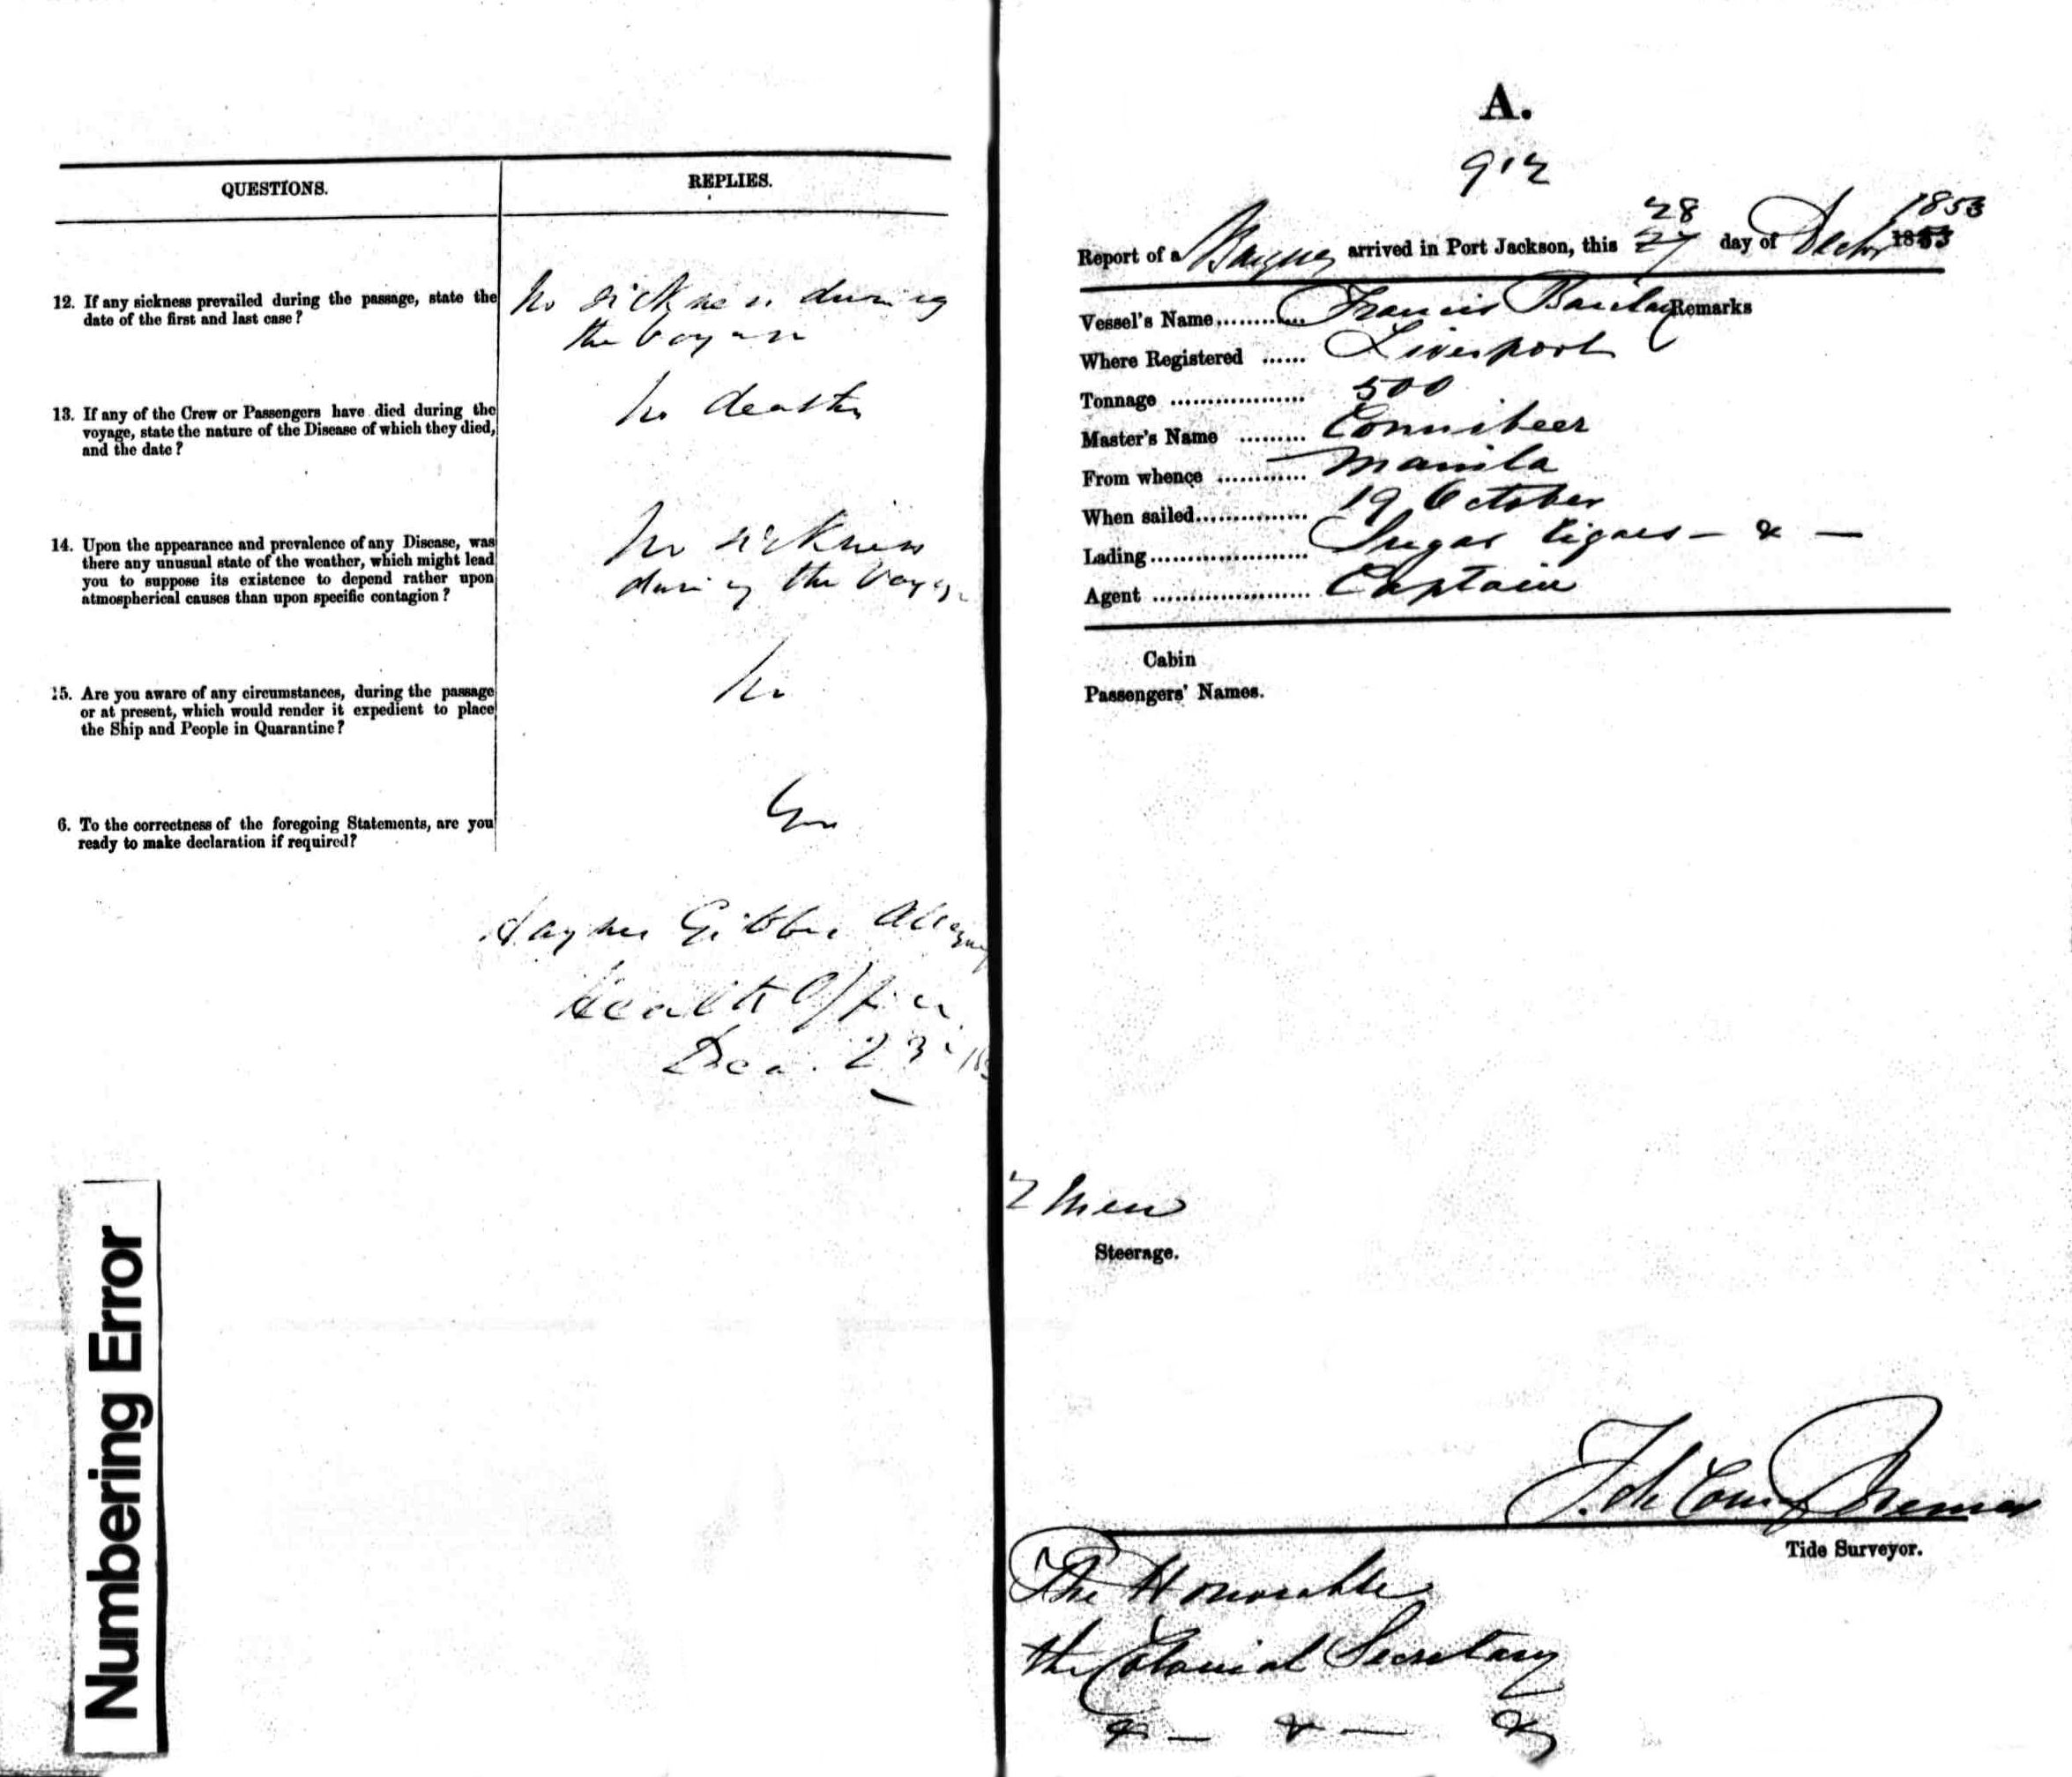 QUESTIONS.
REPLIES.
12. If any sickness prevailed during the passage, state the
date of the first and last case?
No sickness during
the voyage
13. If any of the Crew or Passengers have died during the
voyage, state the nature of the Disease of which they died,
and the date?
No deaths
14. Upon the appearance and prevalence of any Disease, was
there any unusual state of the weather, which might lead
you to suppose its existence to depend rather upon
atmospherical causes than upon specific contagion?
No sickness
during the voyage
15. Are you aware of any circumstances, during the passage
or at present, which would render it expedient to place
the Ship and People in Quarantine?
No
6. To the correctness of the foregoing Statements, are you
ready to make declaration if required?
Yes
Haynes Gibbes Alleyne
Health Officer
Dec. 23 185
Numbering Error
A.
912
28 1853
Report of a Barque arrived in Port Jackson, this 27 day of Decbr 1853
Vessel's Name Francis Barclay Remarks
Where Registered Liverpool
Tonnage 500
Master's Name Connibeer
From whence Manila
When sailed 19 October
Lading Sugar Cigars - & -
Agent Captain
Cabin
Passengers' Names.
2 Men
Steerage.
Tide Surveyor.
The Honorable
the Colonial Secretary
& - & - &